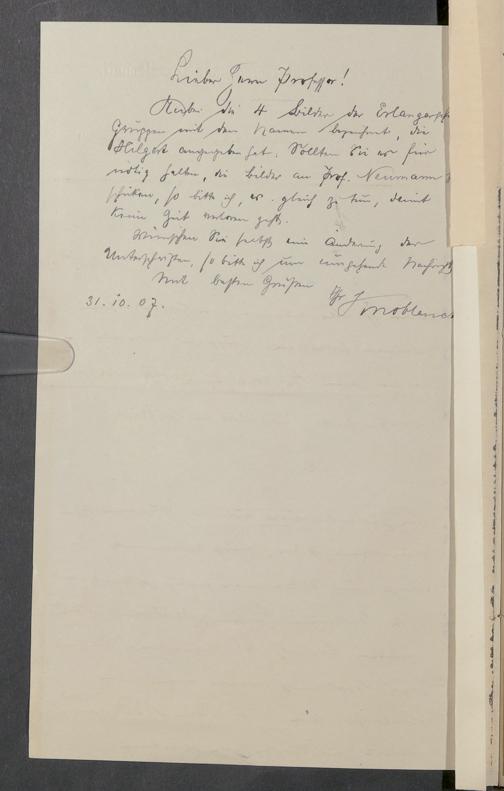 Lieber Herr Professor!
Hierbei die 4 Bilder der Erlanger
Gruppen mit den Namen bezeichnet, die
Hilgert angegeben hat. Sollten Sie es für
nötig halten, die Bilder an Prof. Neumann
schicken, so bitte ich, es gleich zu tun, damit
keine Zeit verloren geht.
Wünschen Sie selbst eine Änderung der
Unterschriften, so bitte ich um umgehende Nachricht
Mit besten Grüßen Ihr
31.10.07.